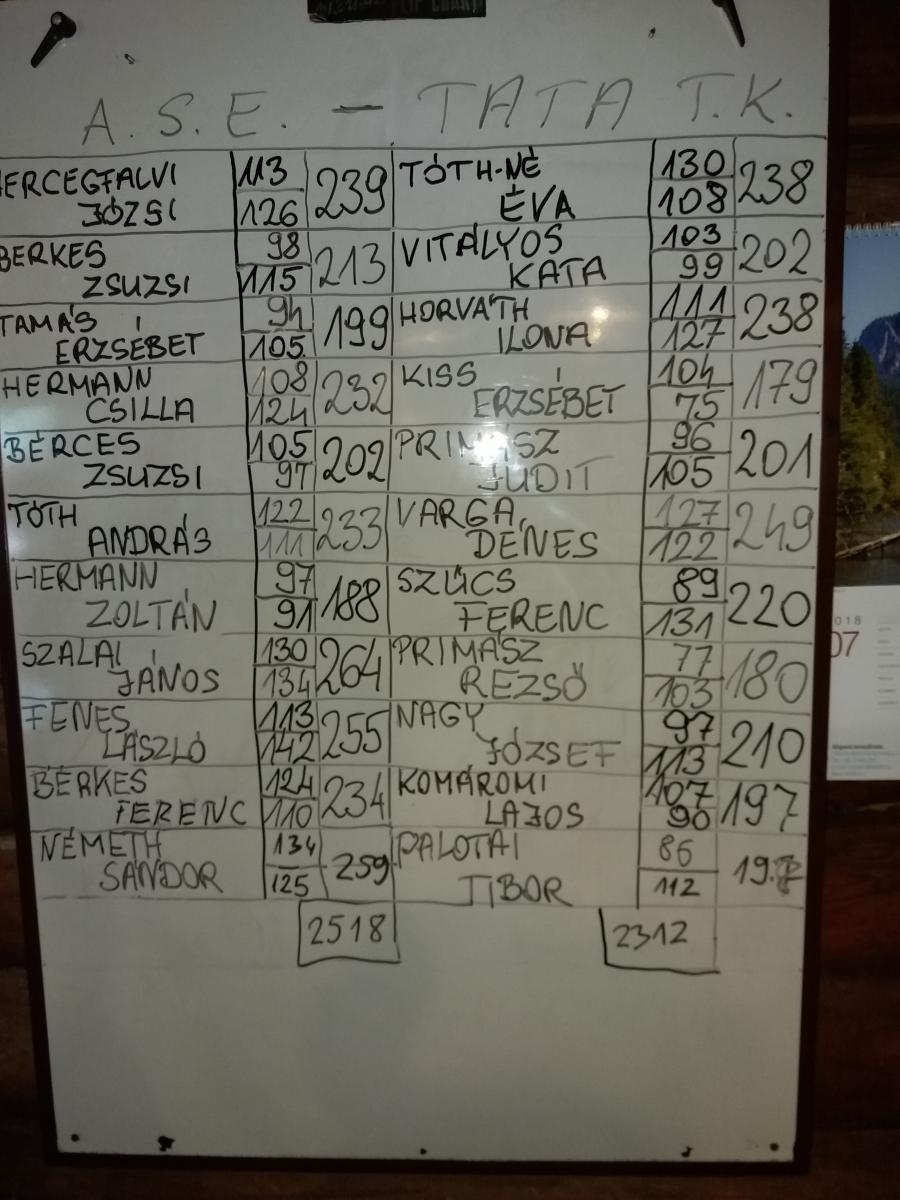 FLIP CHART
A.S.E. — TATA T.K.
HERCEGFALVI 113 239 TÓTH-NÉ 130 238
JÓZSI 126 ÉVA 108
BERKES 98 213 VITÁLYOS 103 202
ZSUZSI 115 KATA 99
TAMÁS 94 199 HORVÁTH 111 238
ERZSÉBET 105 ILONA 127
HERMANN 108 232 KISS 104 179
CSILLA 124 ERZSÉBET 75
BÉRCES 105 202 PRIMÁSZ 96 201
ZSUZSI 97 JUDIT 105
TÓTH 122 233 VARGA 127 249
ANDRÁS 111 DÉNES 122
HERMANN 97 188 SZŰCS 89 220
ZOLTÁN 91 FERENC 131
SZALAI 130 264 PRIMÁSZ 77 180
JÁNOS 134 REZSŐ 103
FENES 113 255 NAGY 97 210
LÁSZLÓ 142 JÓZSEF 113
BERKES 124 234 KOMÁROMI 107 197
FERENC 110 LAJOS 90
NÉMETH 134 259 PALOTAI 86
SÁNDOR 125 TIBOR 112
2518 2312
2018
07